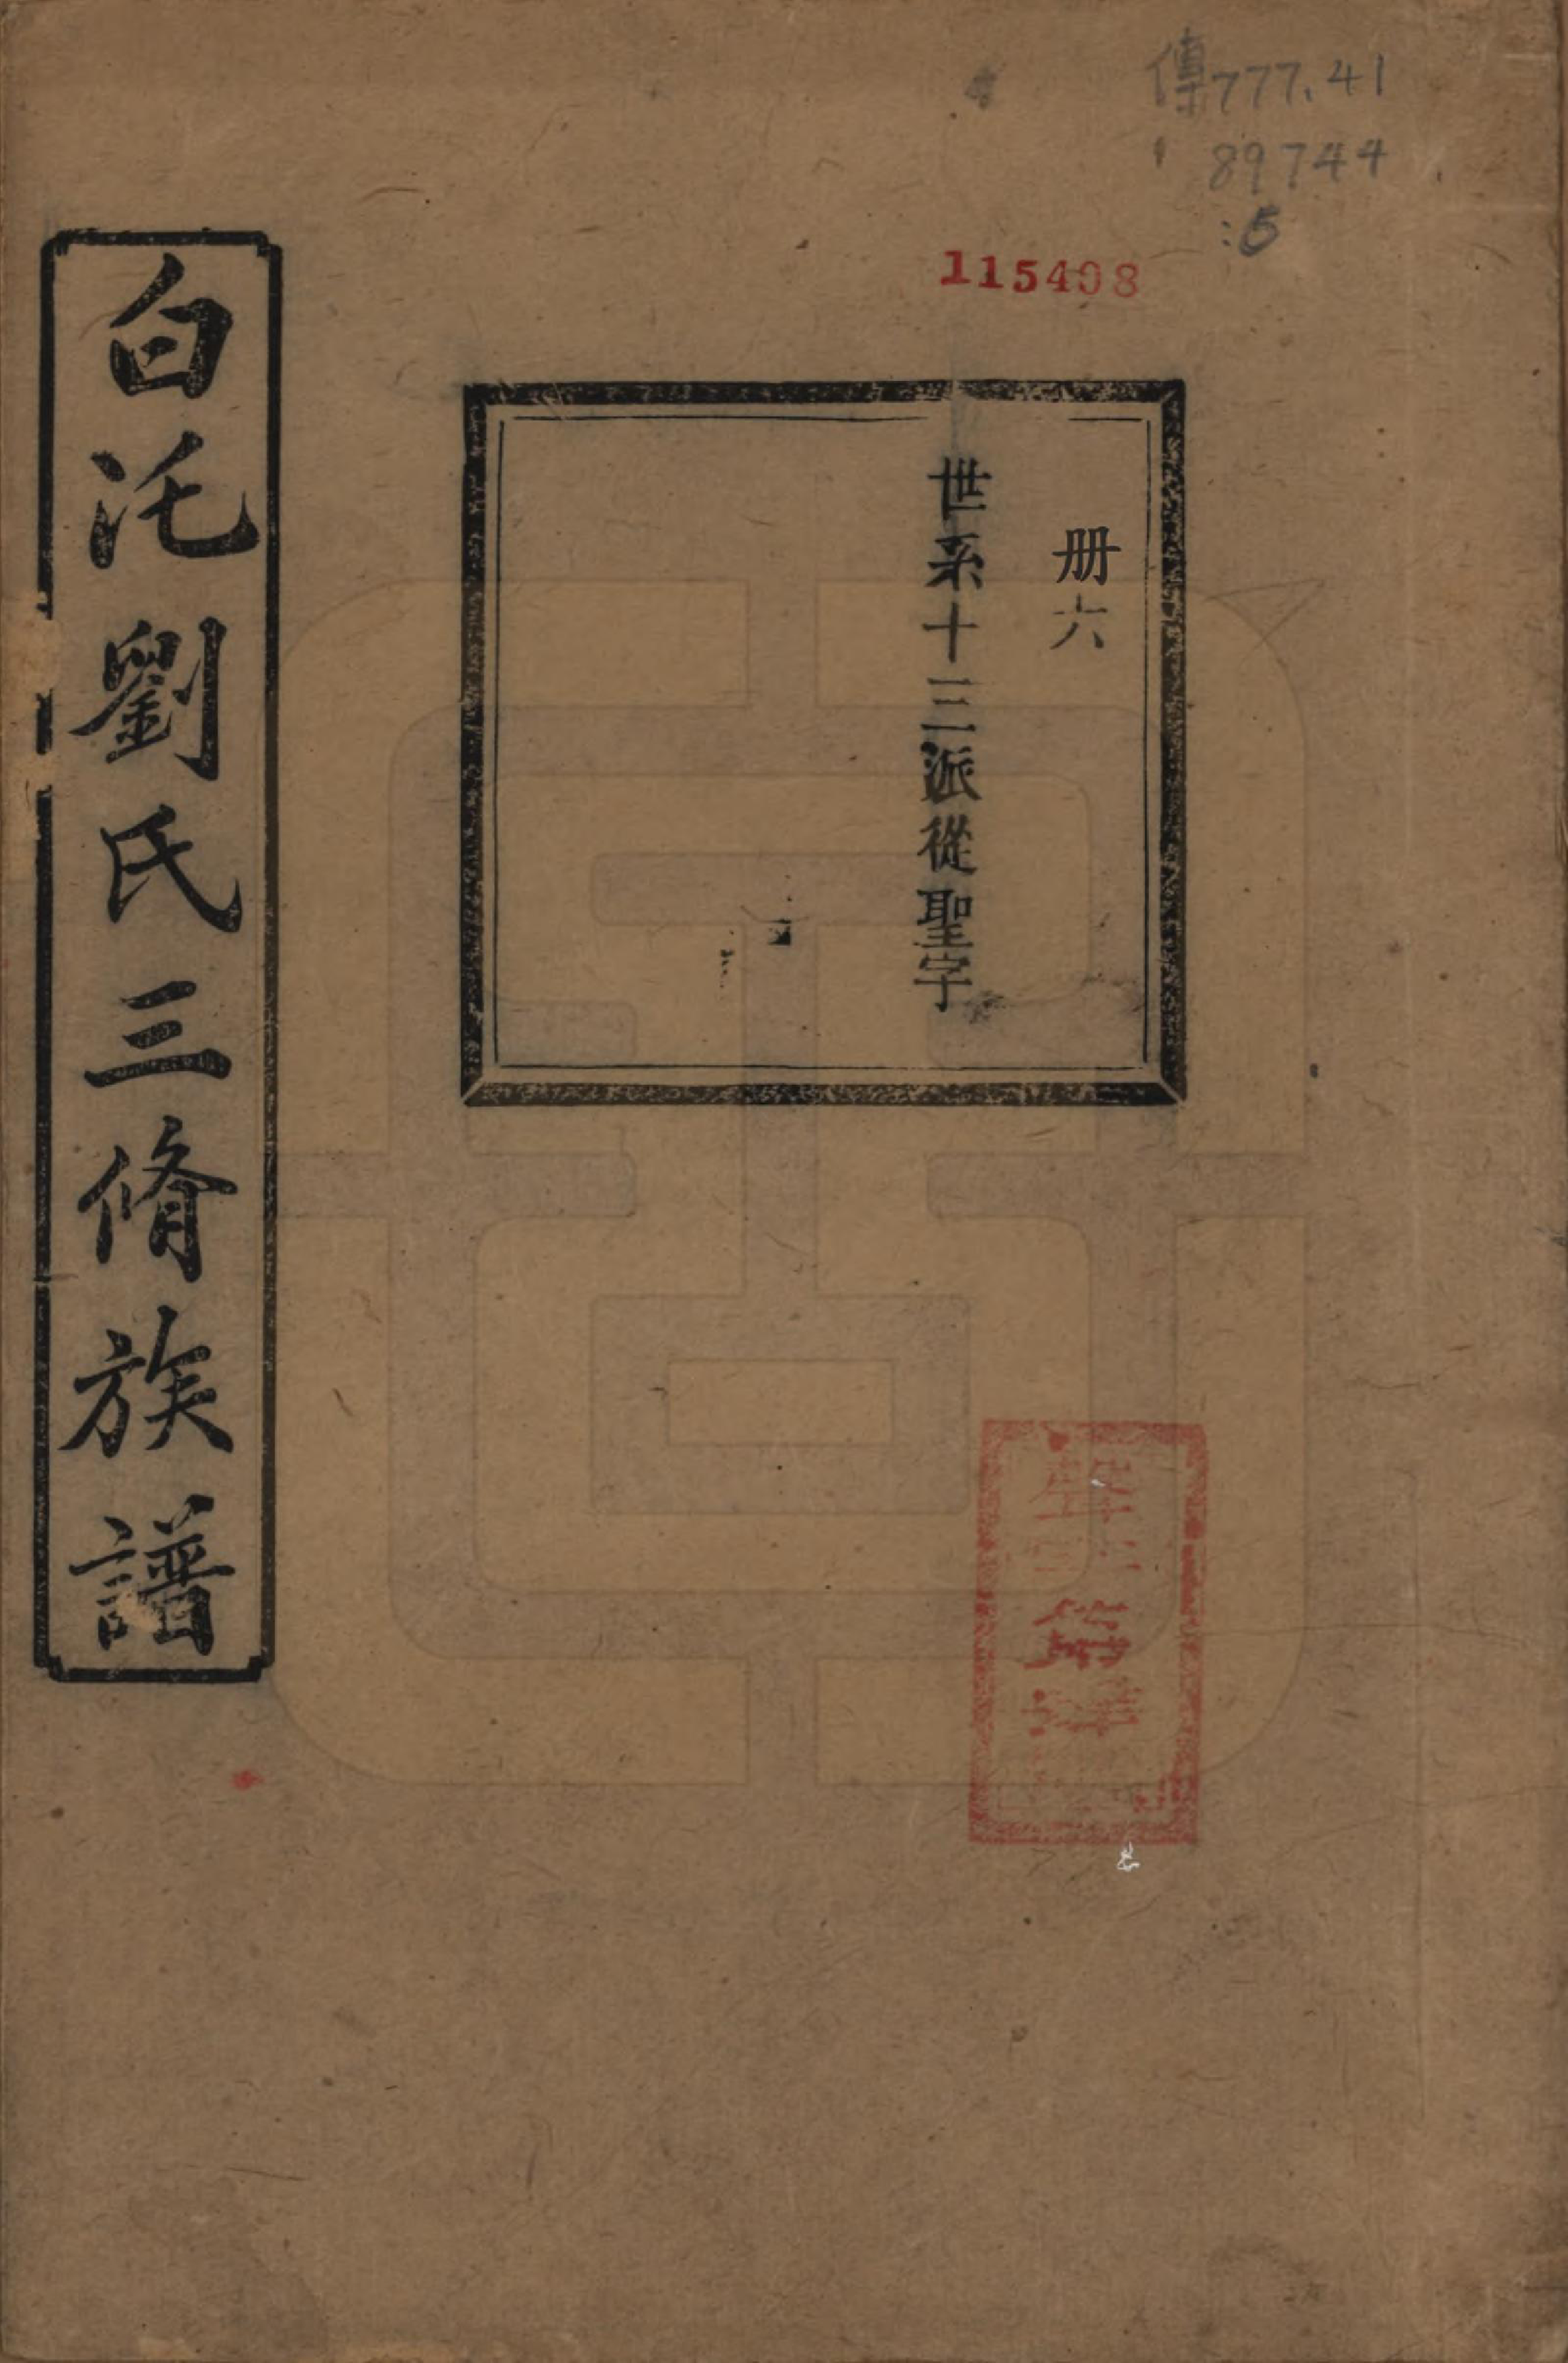 傳777.41
89744
:5
115498
册六
世系十三派從聖字
白沱劉氏三脩族譜